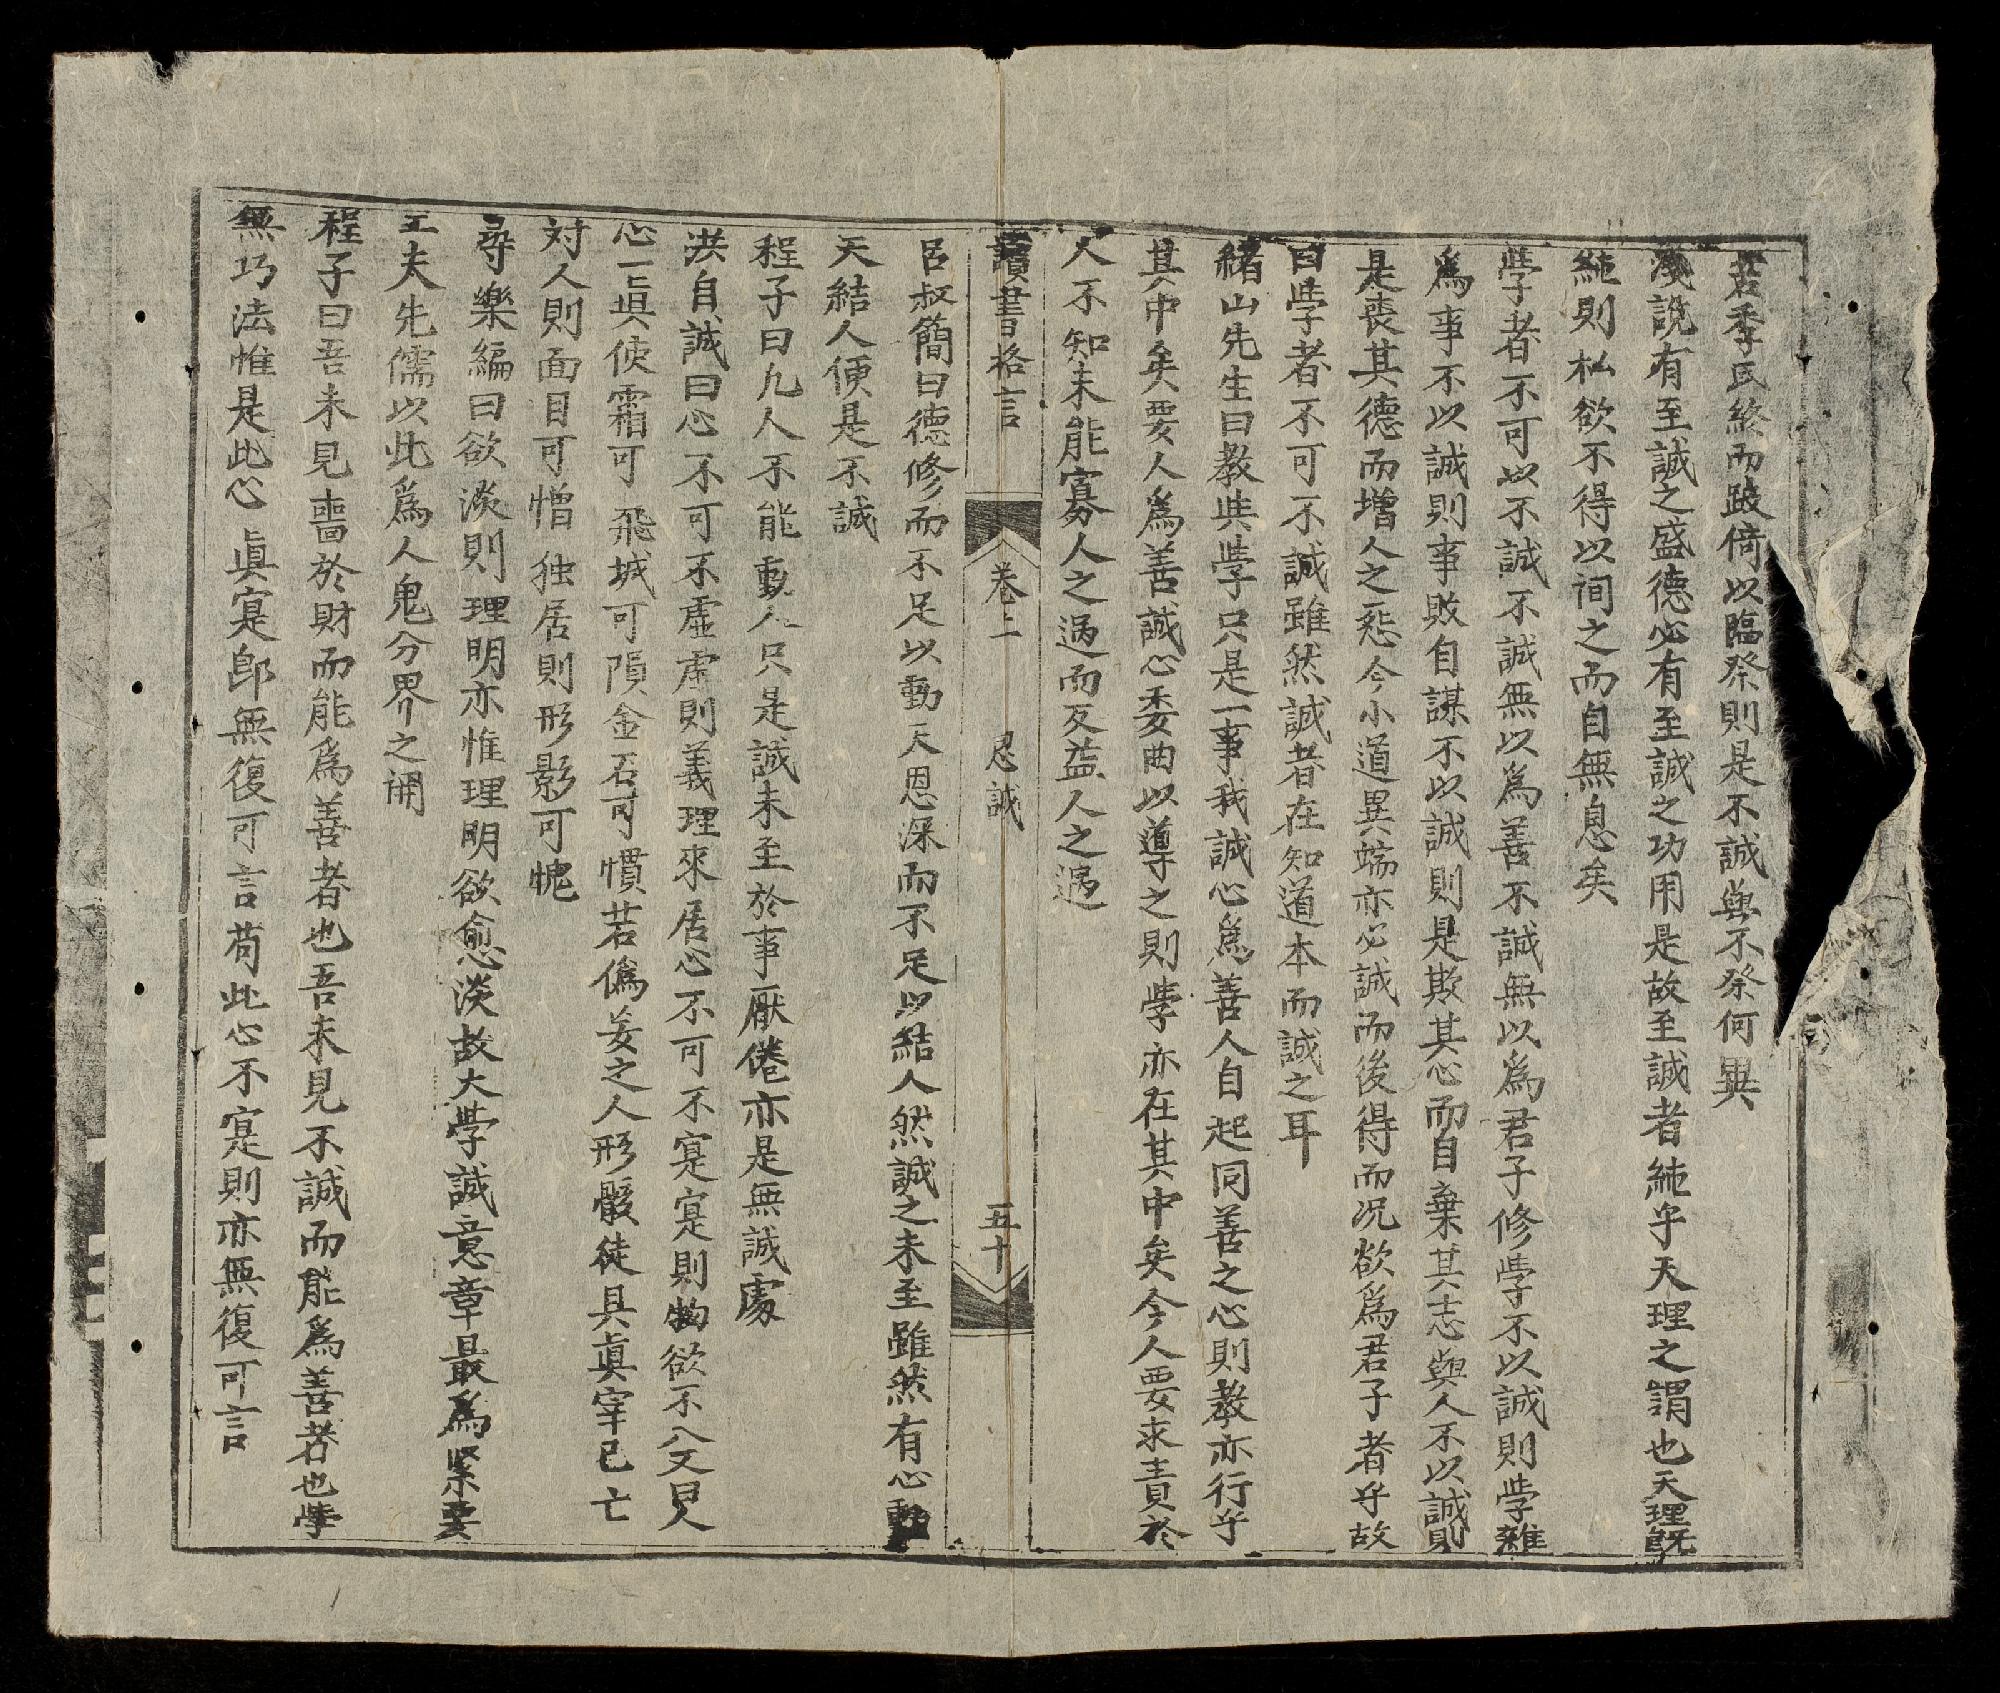 若季氏終而跛倚以臨祭則是不誠與不祭何異
淺說有至誠之盛德必有至誠之功用是故至誠者純乎天理之謂也天理既
純則私欲不得以间之而自無息矣
學者不可以不誠不誠無以爲善不誠無以爲君子修學不以誠則學雜
爲事不以誠則事敗自謀不以誠則是欺其心而自棄其志與人不以誠則
是喪其德而增人之惡今小道異端亦必誠而後得而况欲爲君子者乎故
曰学者不可不誠雖然誠者在知道本而誠之耳
緒山先生曰教與學只是一事我誠心爲善人自起同善之心則教亦行乎
其中矣要人爲善誠心委曲以導之則學亦在其中矣今人要求責於
人不知未能寡人之過而反益人之過
讀書格言 卷上 思誠 五十
呂叔簡曰德修而不足以動天恩深而不足以結人然誠之未至雖然有心動
天結人便是不誠
程子曰凡人不能動人只是誠未至於事厭倦亦是無誠處
洪自誠曰心不可不虛虛則義理來居心不可不寔寔則物欲不入又曰人
心一眞使霜可飛城可隕金石可慣若僞妄之人形骸徒具眞宰已亡
对人則面目可憎独居則形影可愧
尋樂編曰欲淡則理明亦惟理明欲愈淡故大學誠意章最爲緊要
工夫先儒以此爲人鬼分界之關
程子曰吾未見嗇於財而能爲善者也吾未見不誠而能爲善者也學
無巧法惟是此心眞寔郎無復可言苟此心不寔則亦無復可言